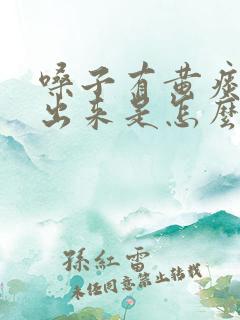 嗓子有黄痰
出来是怎麽
孫紅雷
未经同意禁止转载